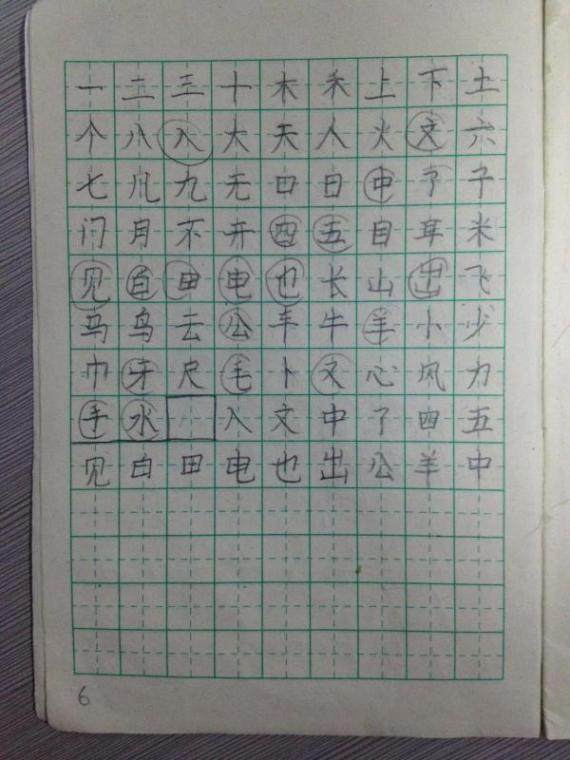 一 二 三 十 木 禾 上 下 土
个 八 入 大 天 人 火 文 六
七 儿 九 无 口 日 中 了 子
门 月 不 开 四 五 目 耳 米
见 白 田 电 也 长 山 出 飞
马 鸟 云 公 车 牛 羊 小 少
巾 牙 尺 毛 卜 又 心 风 力
手 水 入 文 中 了 四 五
见 白 田 电 也 出 公 羊 中
6